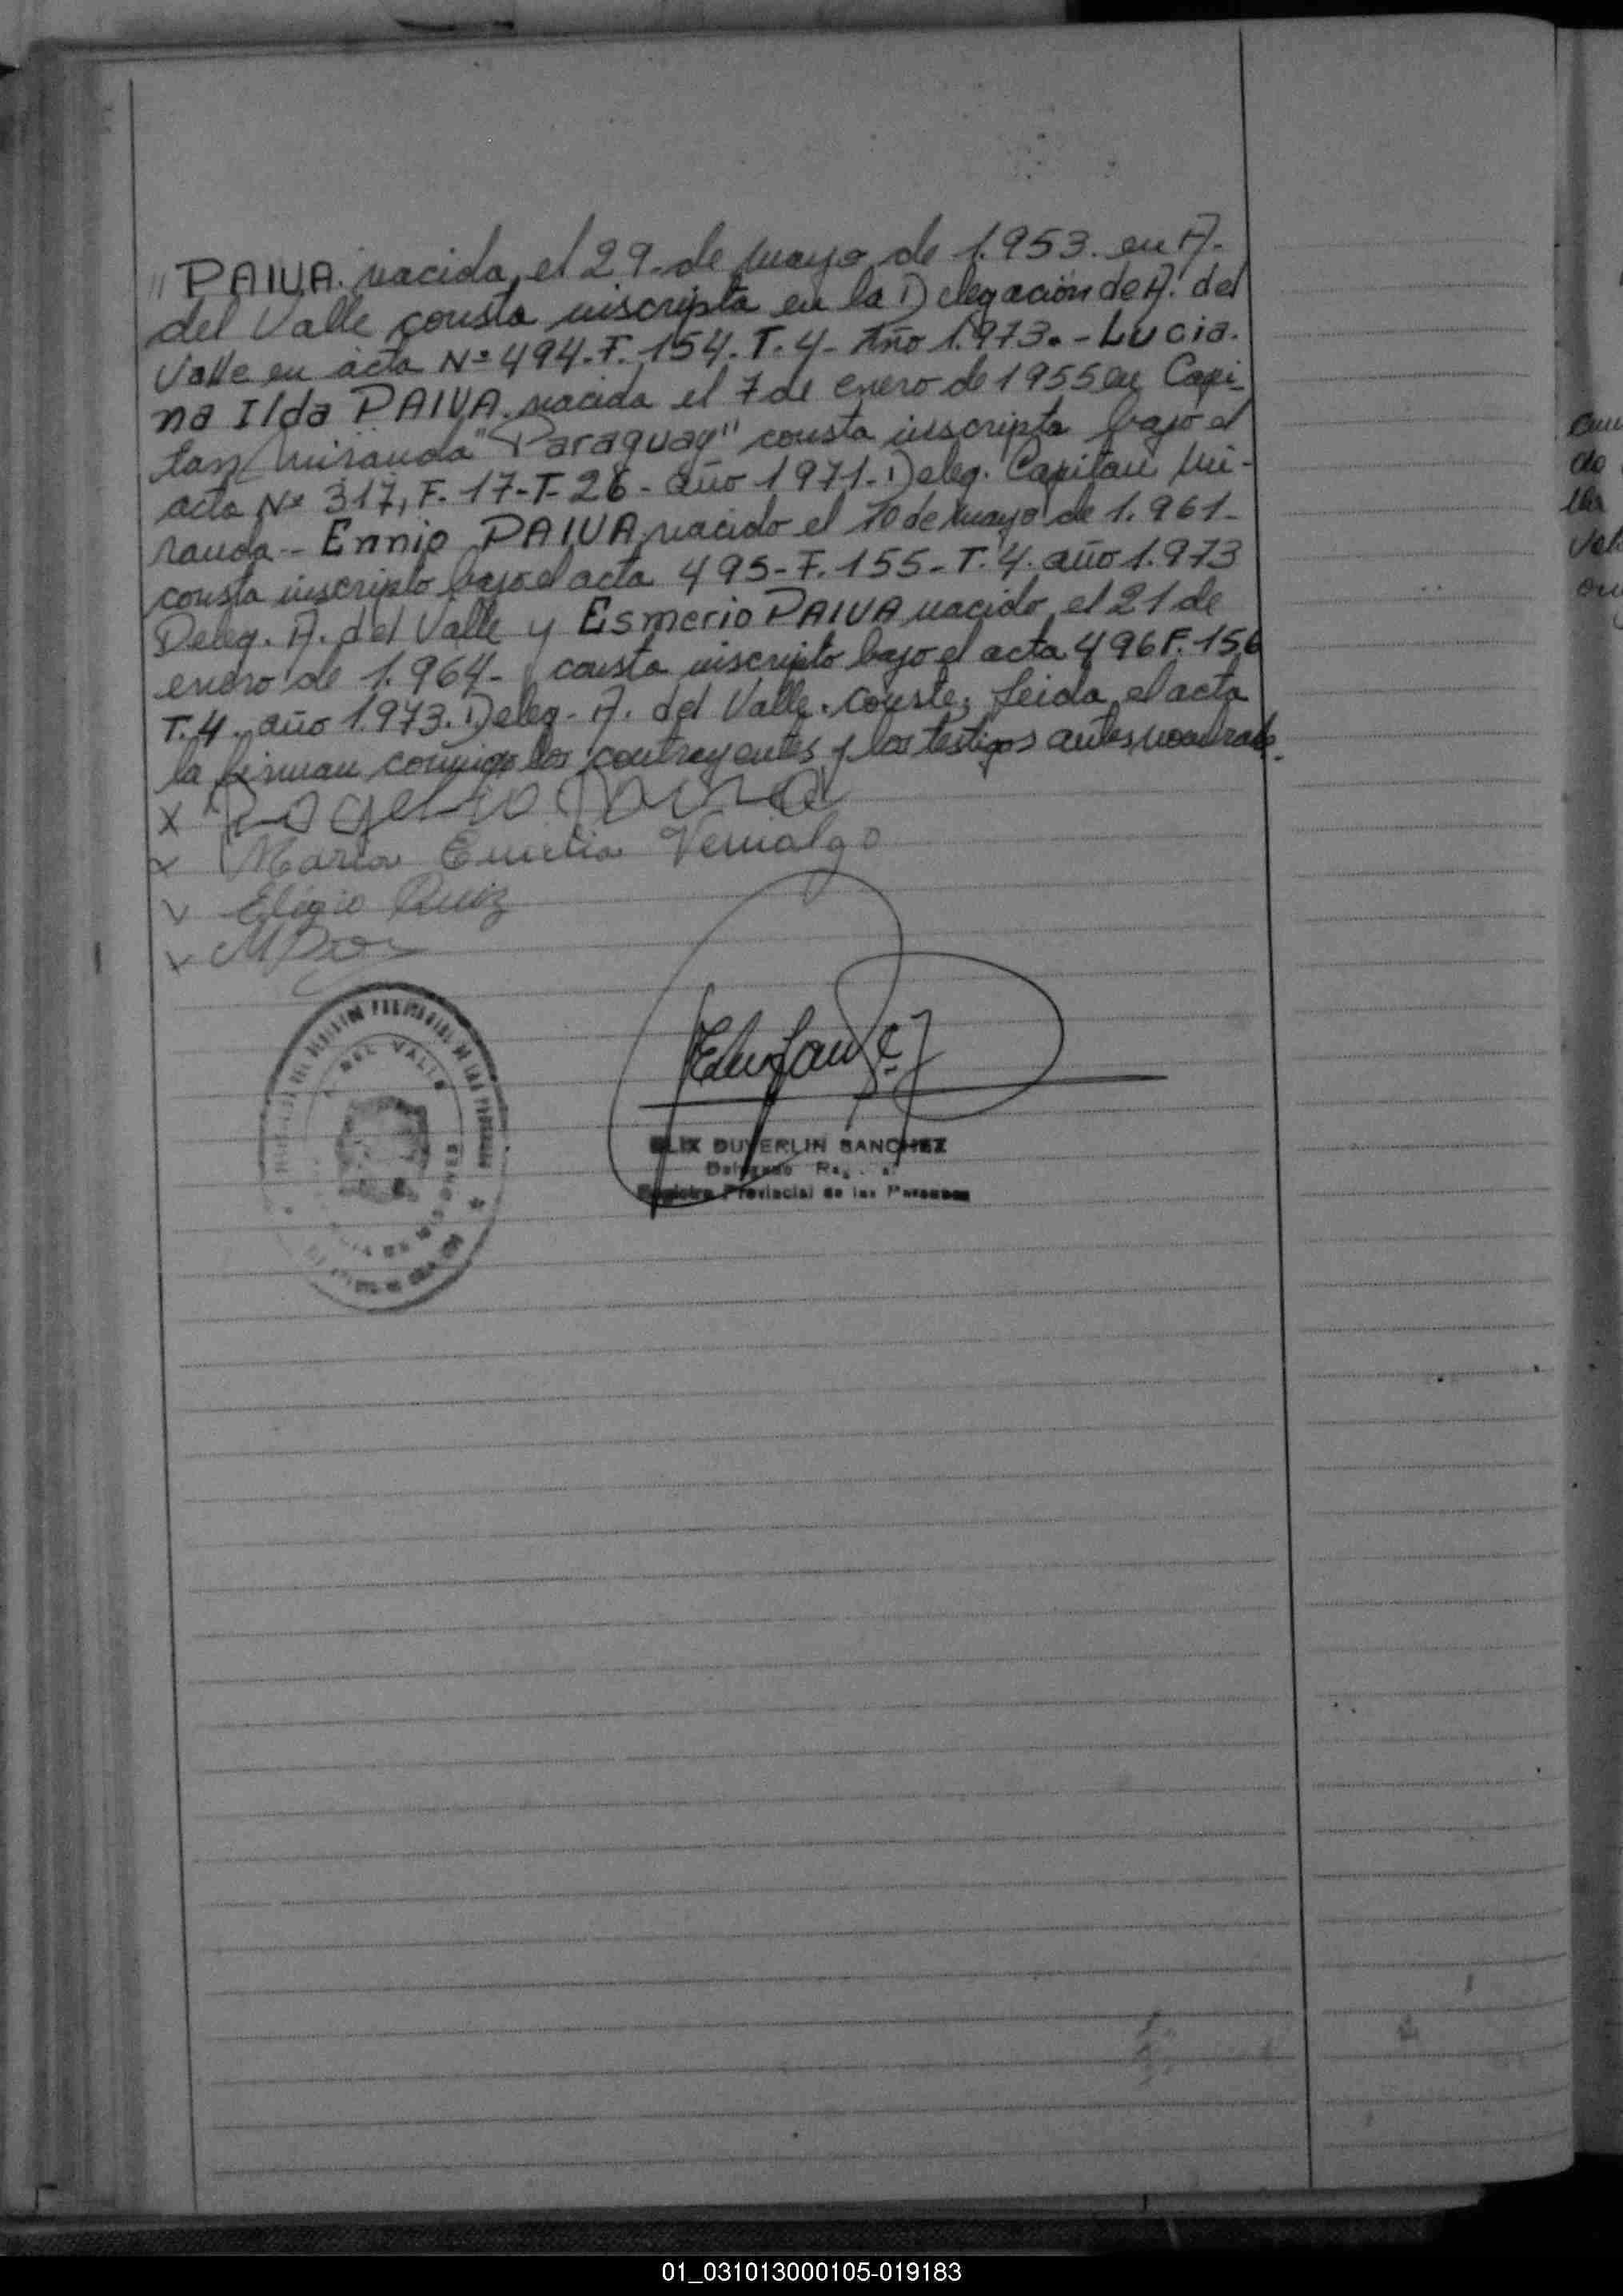 " PAIVA. nacida, el 29. de mayo, de 1.953. en A.
del Valle consta inscripta en la Delegación de A. del
Valle en acta Nº 494. F. 154. T. 4. Año 1.973.- Lucia.
na Ilda PAIVA. nacida el 7 de enero de 1955 en Capi-
tan Miranda "Paraguay" consta inscripta bajo el
acta Nº 317, F. 17-T-26- año 1971. Deleg. Capitan Mi-
randa.- Ennio PAIVA nacido el 10 de mayo de 1.961-
consta inscripto bajo el acta 495-F. 155-T. 4. año 1.973
Deleg. A. del Valle y Esmerio PAIVA nacido, el 21 de
enero de 1.964- consta inscripto bajo el acta 496 F. 156
T. 4. año 1.973. Deleg. A. del Valle. conste; Leida, el acta
la firman conmigo los contrayentes y los testigos antes
X Rogelio
Maria Emilia Vernalgo
Eligio Ruiz
DEL VALLE
DUVERLIN SANCHEZ
Registro Provincial de las Personas
cum
do
01_031013000105-019183